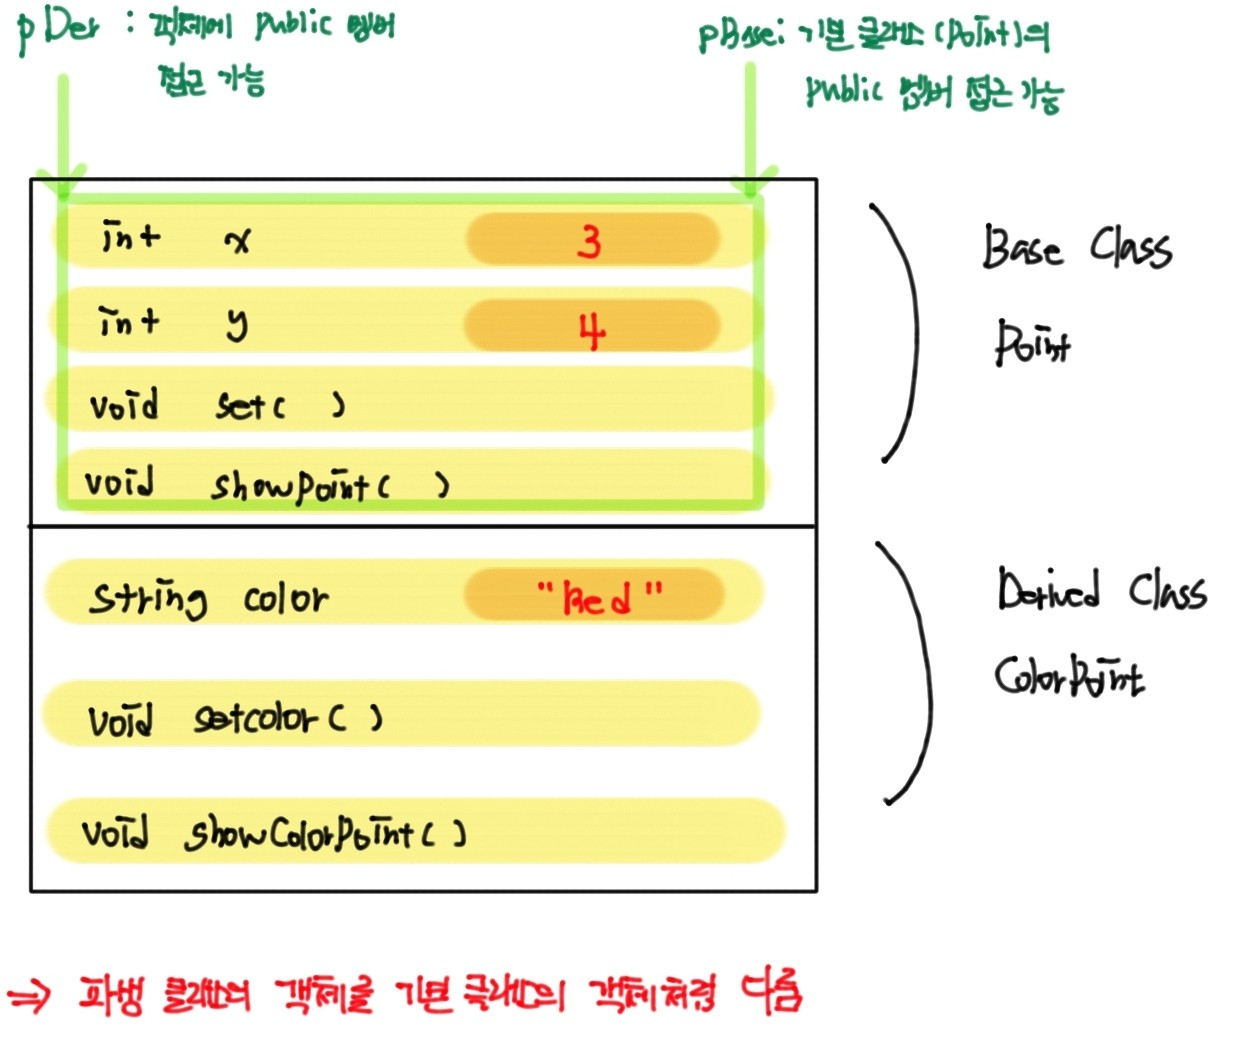 pDer : 객체에 public 멤버
접근 가능
pBase: 기본 클래스 (Point)의
public 멤버 접근 가능
int x 3
int y 4
void set( )
void showPoint( )
Base Class
Point
string color "Red"
void setcolor( )
void showColorPoint( )
Derived Class
ColorPoint
⇒ 파생 클래스의 객체를 기본 클래스의 객체처럼 다룸